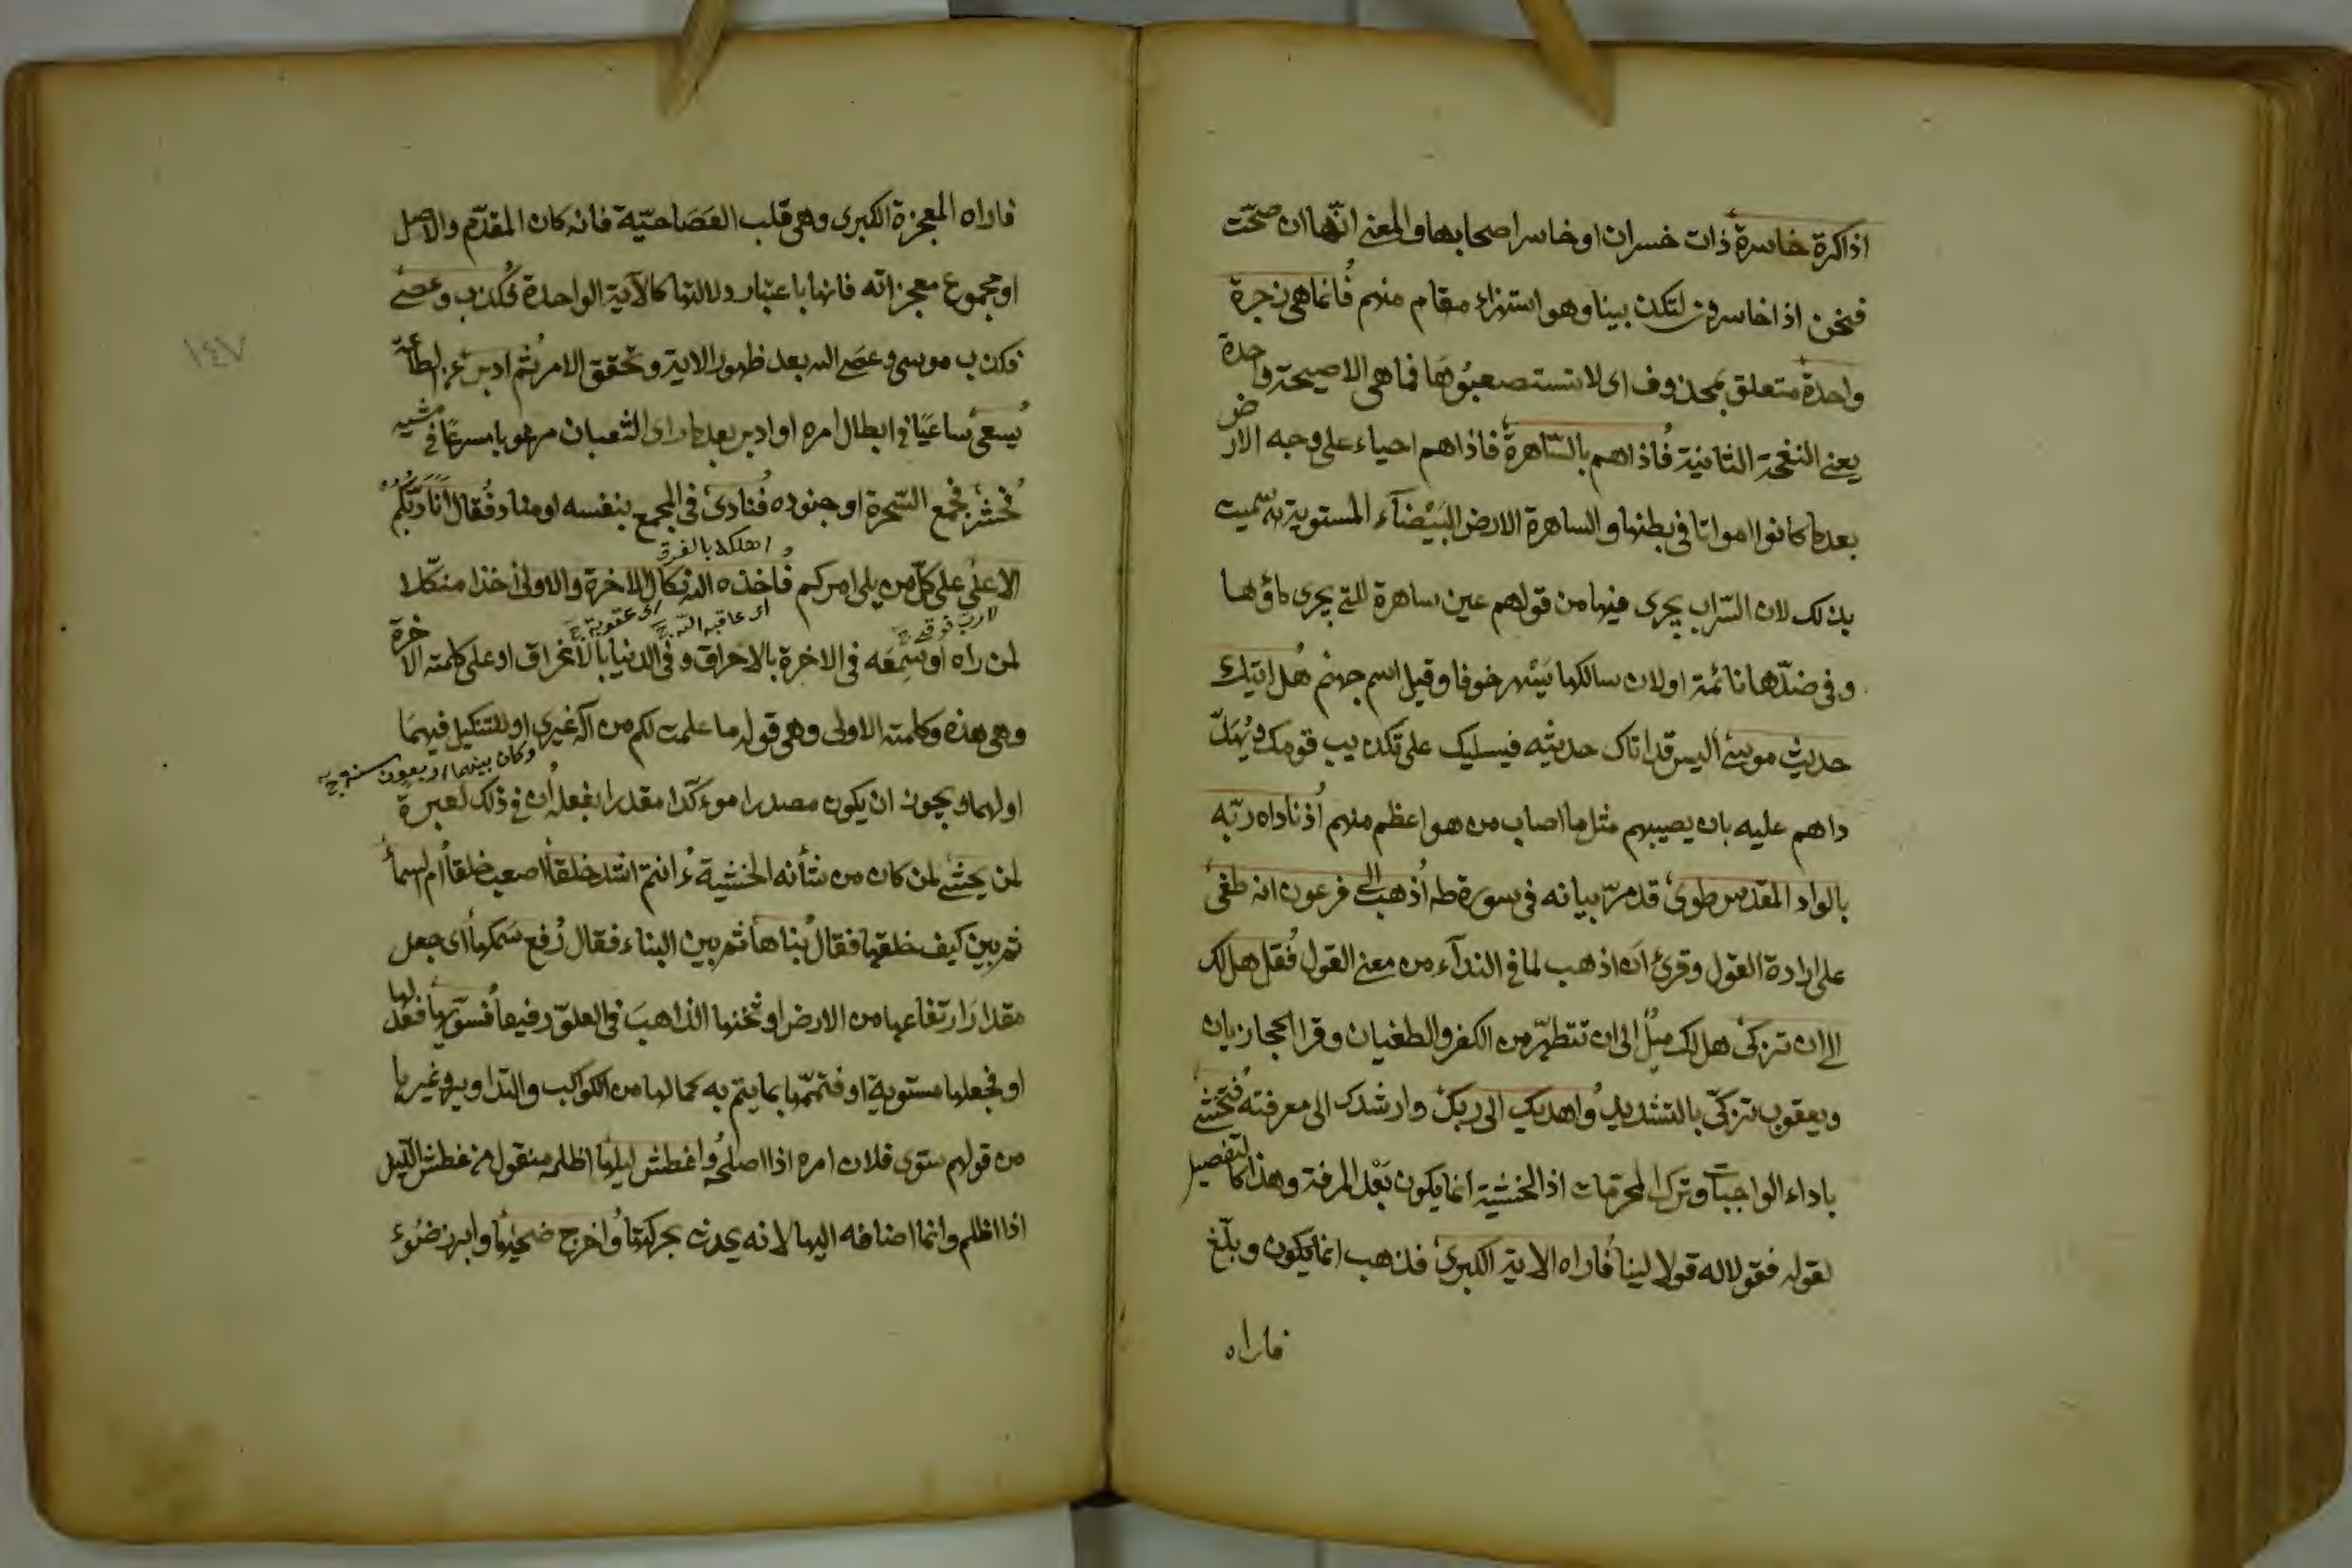 اذا كرة خاسرة ذات خسران او خاسر اصحابها والمعنى انها ان صحت
فنحن اذا خاسرون لتكذيبنا وهو استهزاء مقام منهم فانما هى زجرة
واحدة متعلق بمحذوف اى لا تستصعبوها فما هى الا صيحة واحدة
يعنى النفخة الثانية فاذا هم بالساهرة فاذا هم احياء على وجه الارض
بعد ما كانوا امواتا فى بطنها والساهرة الارض البيضآء المستوية سميت
بذلك لان السراب يجرى فيها من قولهم عين ساهرة للتى يجرى ماؤها
وفى ضدها نائمة او لان سالكها يسهر خوفا وقيل اسم جهنم هل اتيك
حديث موسى اليس قد اتاك حديثه فيسليك على تكذيب قومك ويهدّ
داهم عليه بان يصيبهم مثل ما اصاب من هو اعظم منهم اذ ناداه ربه
بالواد المقدس طوى قد مرّ بيانه فى سورة طه اذهب الى فرعون انه طغى
على ارادة القول وقرئ ان اذهب لما فى الندآء من معنى القول فقل هل لك
الى ان تزكى هل لك ميل الى ان تتطهر من الكفر والطغيان وقرا الحجازيان
ويعقوب تزكى بالتشديد واهديك الى ربك وارشدك الى معرفته فتخشى
باداء الواجبات وترك المحرمات اذ الخشية انما يكون بعد المرفة وهذا كالتفصيل
لقوله فقولا له قولا لينا فاراه الاية الكبرى فذهب انما يكون وبلّغ
فاراه
فاراه المعجزة الكبرى وهى قلب العصا حيّة فانه كان المقدّم والاصل
او مجموع معجزاته فانها باعتبار دلالتها كالآية الواحدة فكذب وعصى
فكذب موسى وعصى الله بعد ظهور الاية وتحقق الامر ثم ادبر عن الطاعة
يسعى ساعيا فى ابطال امره او ادبر بعد ما راى الثعبان مرعوبا مسرعا فى مشيه
فحشر فجمع السّحرة او جنوده فنادى فى المجمع بنفسه او مناد فقال انا ربّكم
اهلكه بالغرق
الاعلى على كلّ من يلى امركم فاخذه الله نكال الاخرة والاولى اخذا منكلا
لا ربّ فوقى ج
اى عاقبه الله ج
اى عقوبة ج
لمن راه او سمعه فى الاخرة بالاحراق وفى الدنيا بالاغراق او على كلمته الاخرة
وهى هذه وكلمته الاولى وهى قوله ما علمت لكم من آله غيرى او للتنكيل فيهما
وكان بينهما اربعون سنة ج
او لهما ويجوز ان يكون مصدرا موءكدا مقدرا بفعله ان فى ذلك لعبرة
لمن يخشى لمن كان من شأنه الخشية ء انتم اشد خلقا اصعب خلقا ام السمآء
ثم بين كيف خلقها فقال بناها ثم بين البناء فقال رفع سمكها اى جعل
مقدار ارتفاعها من الارض او ثخنها الذاهب فى العلوّ رفيعا فسوّيها فعدلها
او فجعلها مستوية او فتممّها بما يتم به كمالها من الكواكب والتداوير وغيرها
من قولهم سوى فلان امره اذا اصلحه واغطش ليلها اظلمه منقول من غطش الليل
اذا اظلم وانما اضافه اليها لانه يحدث بحركتها واخرج ضحيها وابرز ضوء
١٤٧